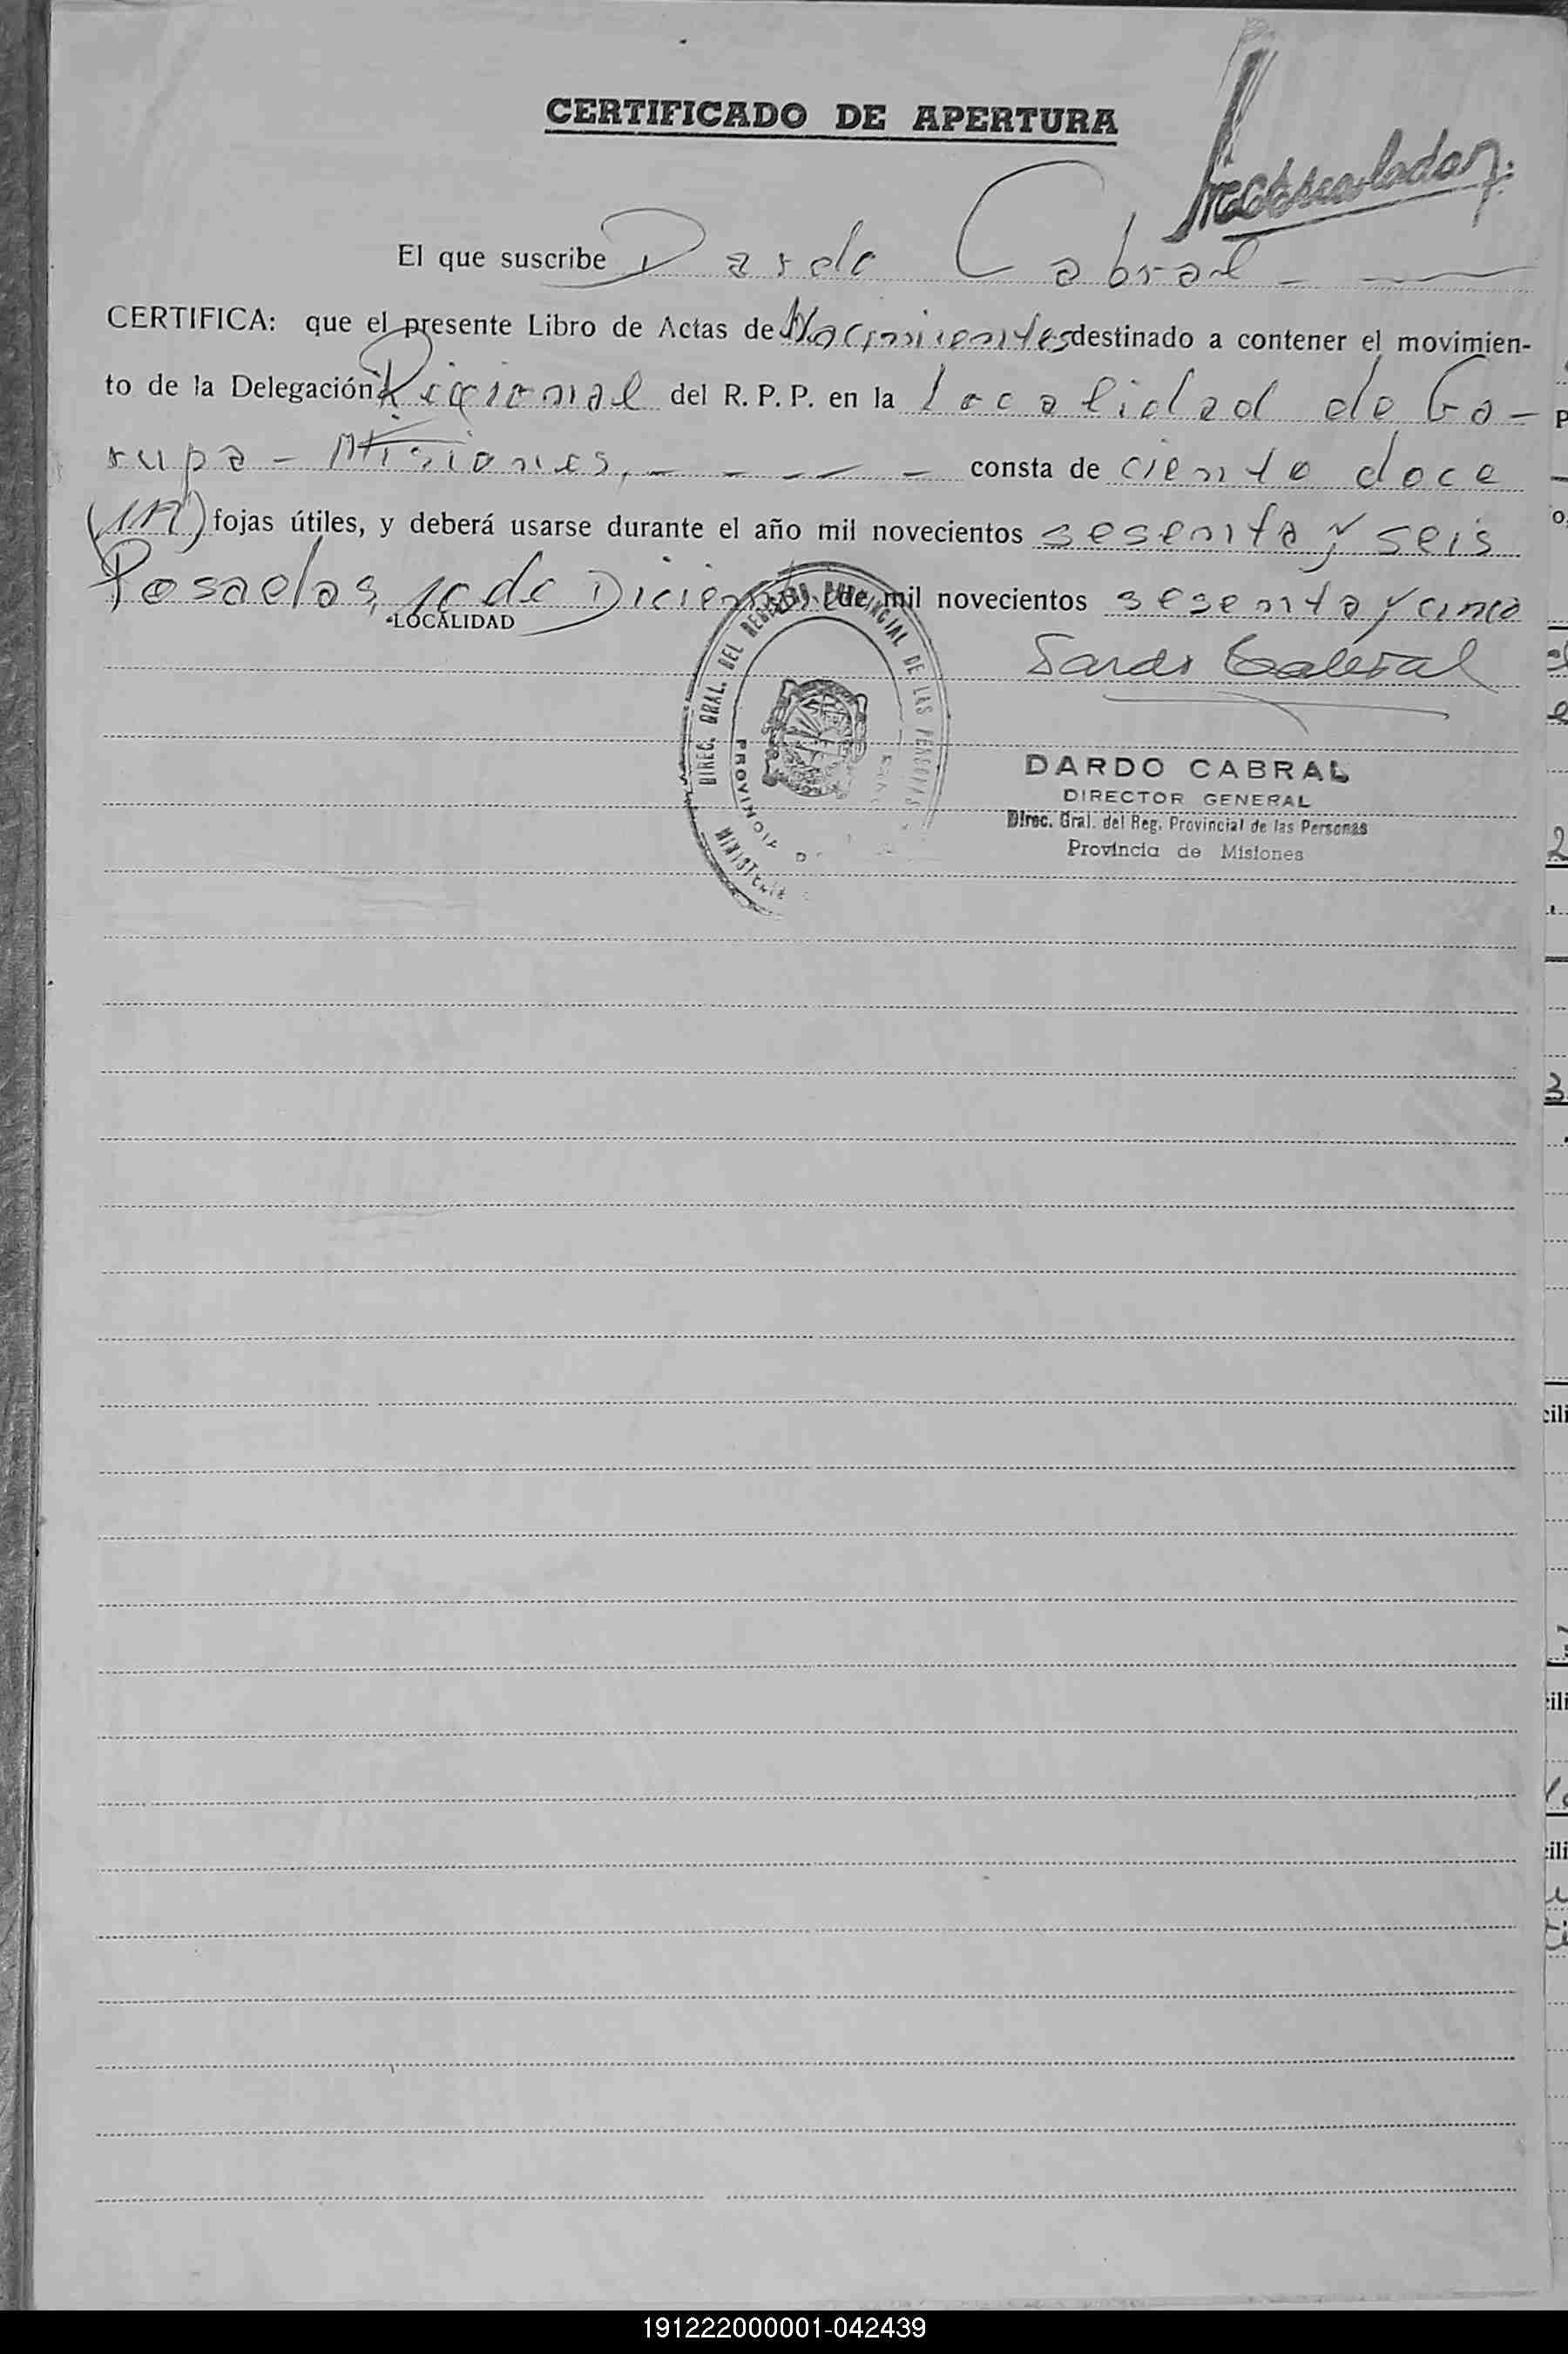 CERTIFICADO DE APERTURA
El que suscribe Dardo Cabral
CERTIFICA: que el presente Libro de Actas de Nacimientos destinado a contener el movimien-
to de la Delegación Regional del R. P. P. en la localidad de Ga-
rupa - Misiones, - - - - consta de ciento doce
(112) fojas útiles, y deberá usarse durante el año mil novecientos sesenta y seis
Posadas, de Diciembre de mil novecientos sesenta y cinco
LOCALIDAD
Dardo Cabral
DIREC. GRAL. DEL REGISTRO PROVINCIAL DE LAS PERSONAS
PROVINCIA
DARDO CABRAL
DIRECTOR GENERAL
Direc. Gral. del Reg. Provincial de las Personas
Provincia de Misiones
191222000001-042439